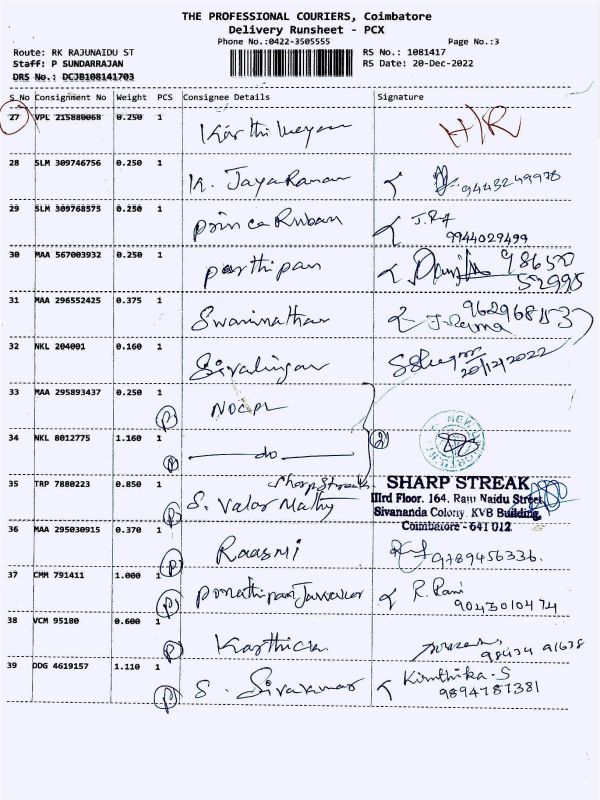 THE PROFESSIONAL COURIERS, Coimbatore
Delivery Runsheet - PCX
Phone No.:0422-3505555 Page No.:3
Route: RK RAJUNAIDU ST RS No.: 1081417
Staff: P SUNDARRAJAN RS Date: 20-Dec-2022
DRS No.: DCJB108141703
S No Consignment No Weight PCS Consignee Details Signature
27 VPL 215880068 0.250 1 Karthikeyan H/R
28 SLM 309746756 0.250 1 K. Jayaraman 9443249978
29 SLM 309768575 0.250 1 prince Ruban 9944029499
30 MAA 567003932 0.250 1 parthipan 98650
52995
31 MAA 296552425 0.375 1 Swaminathan
32 NKL 204001 0.160 1 Sivalingam 20/12/2022
33 MAA 295893437 0.250 1 P NOCPL
34 NKL 8012775 1.160 1 P do (2)
35 TRP 7880223 0.850 1 P Sharp Streak
S. Valar Mathy
SHARP STREAK
IIIrd Floor. 164, Raju Naidu Street,
Sivananda Colony. KVB Building,
Coimbatore - 641 012.
36 MAA 295030915 0.370 1 P Raasmi 9789456336.
37 CMM 791411 1.000 1 P R. Rani
9043010474
38 VCM 95180 0.600 1 P Karthick 98434 91638
39 DDG 4619157 1.110 1 P S. Sivakumar Kiruthika-S
9894787381